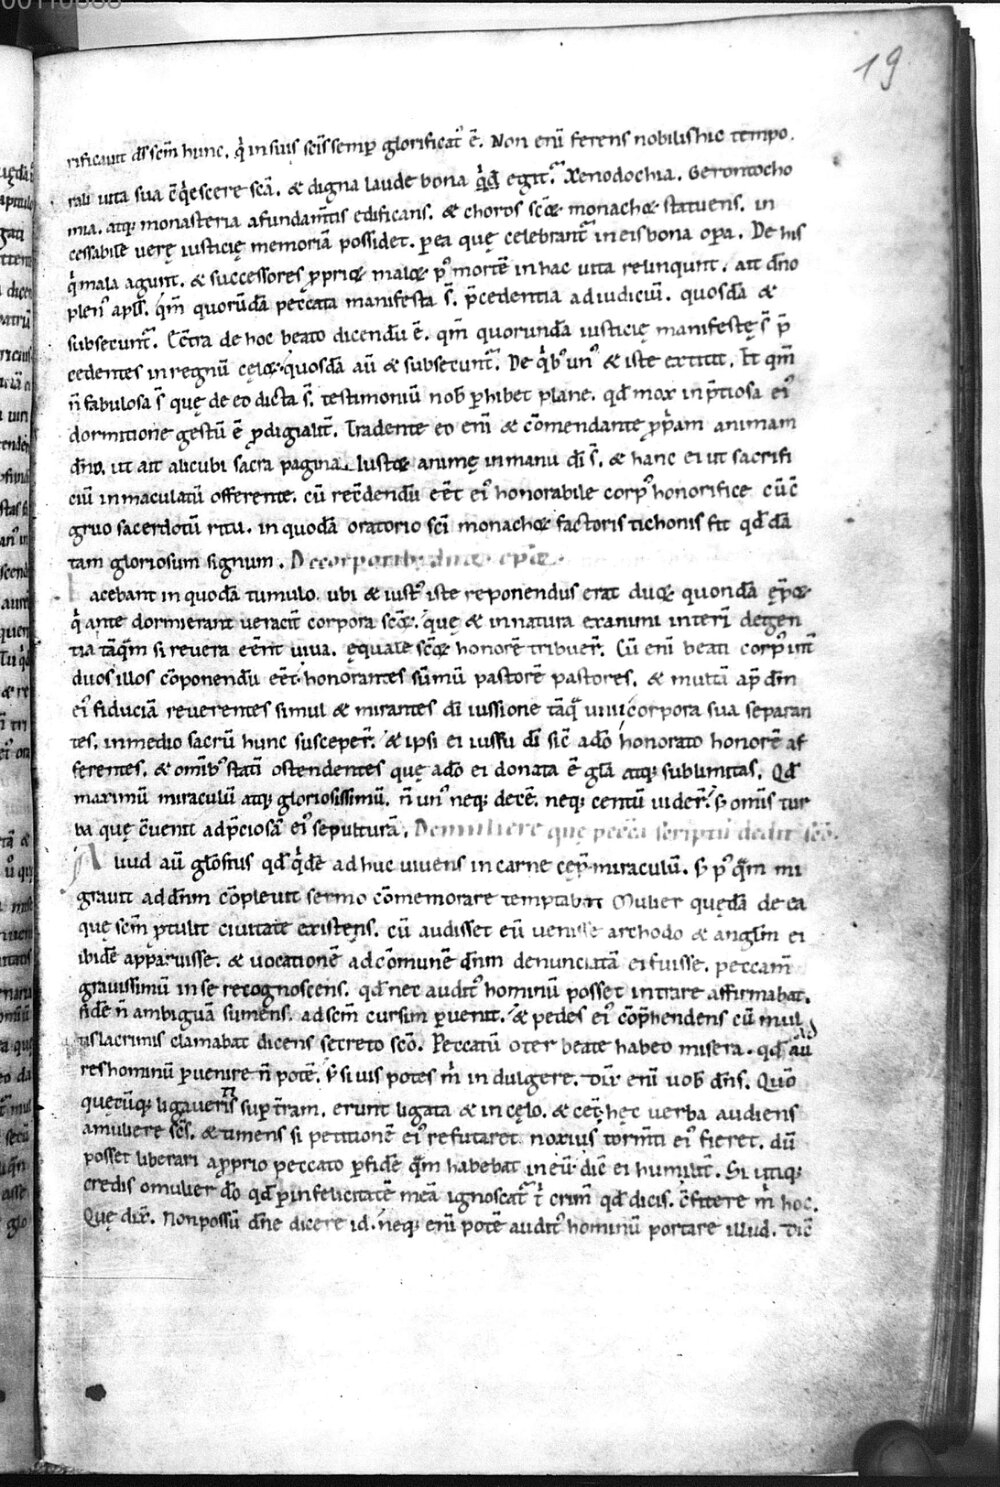 19
rificauit d̄s sc̄m hunc. q̇ in suis sc̄is semꝑ glorificat᷒ ē. Non eni̅ ferens nobilis hic tempo.
rali uita sua c̄q̇escere sc̄a. & digna laude bona q̇dē egit. Xenodochia. Gerontocho
mia. atq; monasteria a fundam̄tis edificans. & choros scōꝝ monachoꝝ statuens. in
cessabile uerę iusticię memoriā possidet. ꝑ ea quę celebrant᷒ in eis bona oꝑa. De his
q̇ mala agunt. & successores ꝓprioꝝ maloꝝ p᷒ mortē in hac uita relinqunt. ait dīno
plen᷒ apl̄s. qm̄ quorūdā peccata manifesta s̄. p̄cedentia ad iudiciū. quosdā &
subsecunt᷒. Cōtra de hoc beato dicendū ē. qm̄ quorundā iusticię manifestę s̄ p̄
cedentes in regnū cęloꝝ. quosdā aū & subsecunt᷒. De q̇b᷒ un᷒ & iste extitit. Et qm̄
n̄ fabulosa s̄ quę de eo dicta s̄. testimoniū nob̄ ꝑhibet plane. qd̄ mox in p̄tiosa ei᷒
dormitione gestū ē ꝓdigialit̄. Tradente eo eni̅ & cōmendante ꝓp̄am animam
dn̄o. ut ait alicubi sacra pagina. Iustoꝝ animę in manu dī s̄. & hanc ei ut sacrifi
ciū inmaculatū offerente. cū recōdendū eēt ei᷒ honorabile corp᷒ honorifice cū cō
gruo sacerdotū ritu. in quodā oratorio scī monachoꝝ factoris tichonis fit qd̄dā
tam gloriosum signum. De corporib; duoꝝ epoꝝ.
Iacebant in quodā tumulo. ubi & iust᷒ iste reponendus erat duoꝝ quondā ep̄oꝝ
q̇ ante dormierant ueracit̄ corpora scōꝝ. quę & in natura exanimi interī degen
tia tāq̄m si reuera eēnt uiua. ęquale scōꝝ honorē tribuer̄. Cū eni̅ beati corp᷒ int̄
duos illos cōponendū eēt. honorantes sūmū pastorē pastores. & multā ap̄ dn̄m
ei᷒ fiduciā reuerentes simul & mirantes dī iussione tāq̄ uiui corpora sua separan
tes. in medio sacrū hunc susceper̄. & ipsi ei iussu dī sic̄ a dō honorato honorē af
ferentes. & om̄ib᷒ statī ostendentes quę a dō ei donata ē gl̄a atq; sublimitas. Qd̄
maximū miraculū atq; gloriosissimū. n̄ un᷒ neq; decē. neq; centū uider̄. s; om̄is tur
ba quę cōuenit ad p̄ciosā ei᷒ sepulturā. De muliere quę peccā scriptū dedit scō.
Aliud aū gl̄osius qd̄ q̇dē adhuc uiuens in carne cęp̄ miraculū. s; p᷒q̄m mi
grauit ad dn̄m cōpleuit sermo cōmemorare temptabit. Mulier quędā de ea
quę sc̄m ꝓtulit ciuitate existens. cū audisset eū uenisse a rhodo & angl̄m ei
ibidē apparuisse. & uocationē ad cōmunē dn̄m denunciatā ei fuisse. peccam̄
grauissimū in se recognoscens. qd̄ nec audit᷒ hominū posset intrare affirmabat.
fidē n̄ ambiguā sumens. ad sc̄m cursim ꝑuenit. & pedes ei᷒ cōp̄hendens cū mul
tis lacrimis clamabat dicens secreto scō. Peccatū o ter beate habeo misera. qd̄ ad au
res hominū ꝑuenire n̄ potē. s; si uis potes m̄ indulgere. Dix̄ eni̅ uob̄ dn̄s. Quō
quecūq; ligaueritis sup̄ terrām. erunt ligata & in cęlo. & cet̄. hęc uerba audiens
a muliere sc̄s. & timens si petitionē ei᷒ refutaret. noxius torm̄ti ei᷒ fieret. dū
posset liberari a ꝓprio peccato ꝑ fidē q̄m habebat in eū. dic̄ ei humilit̄. Si utiq;
credis o mulier dō qd̄ ꝑ infelicitatē meā ignoscat᷒ t̄ crim̄ qd̄ dicis. cōfitere m̄ hoc.
Quę dix̄. Non possū dn̄e dicere id. neq; eni̅ potē audit᷒ hominū portare illud. Dic̄